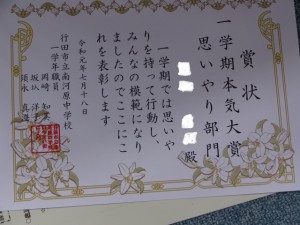 賞状
一学期本気大賞
思いやり部門
殿
一学期では思いや
りを持って行動し、
みんなの模範になり
ましたのでここにこ
れを表彰します
令和元年七月十八日
行田市立南河原中学校
一学年職員
岡崎
坂以 洋子